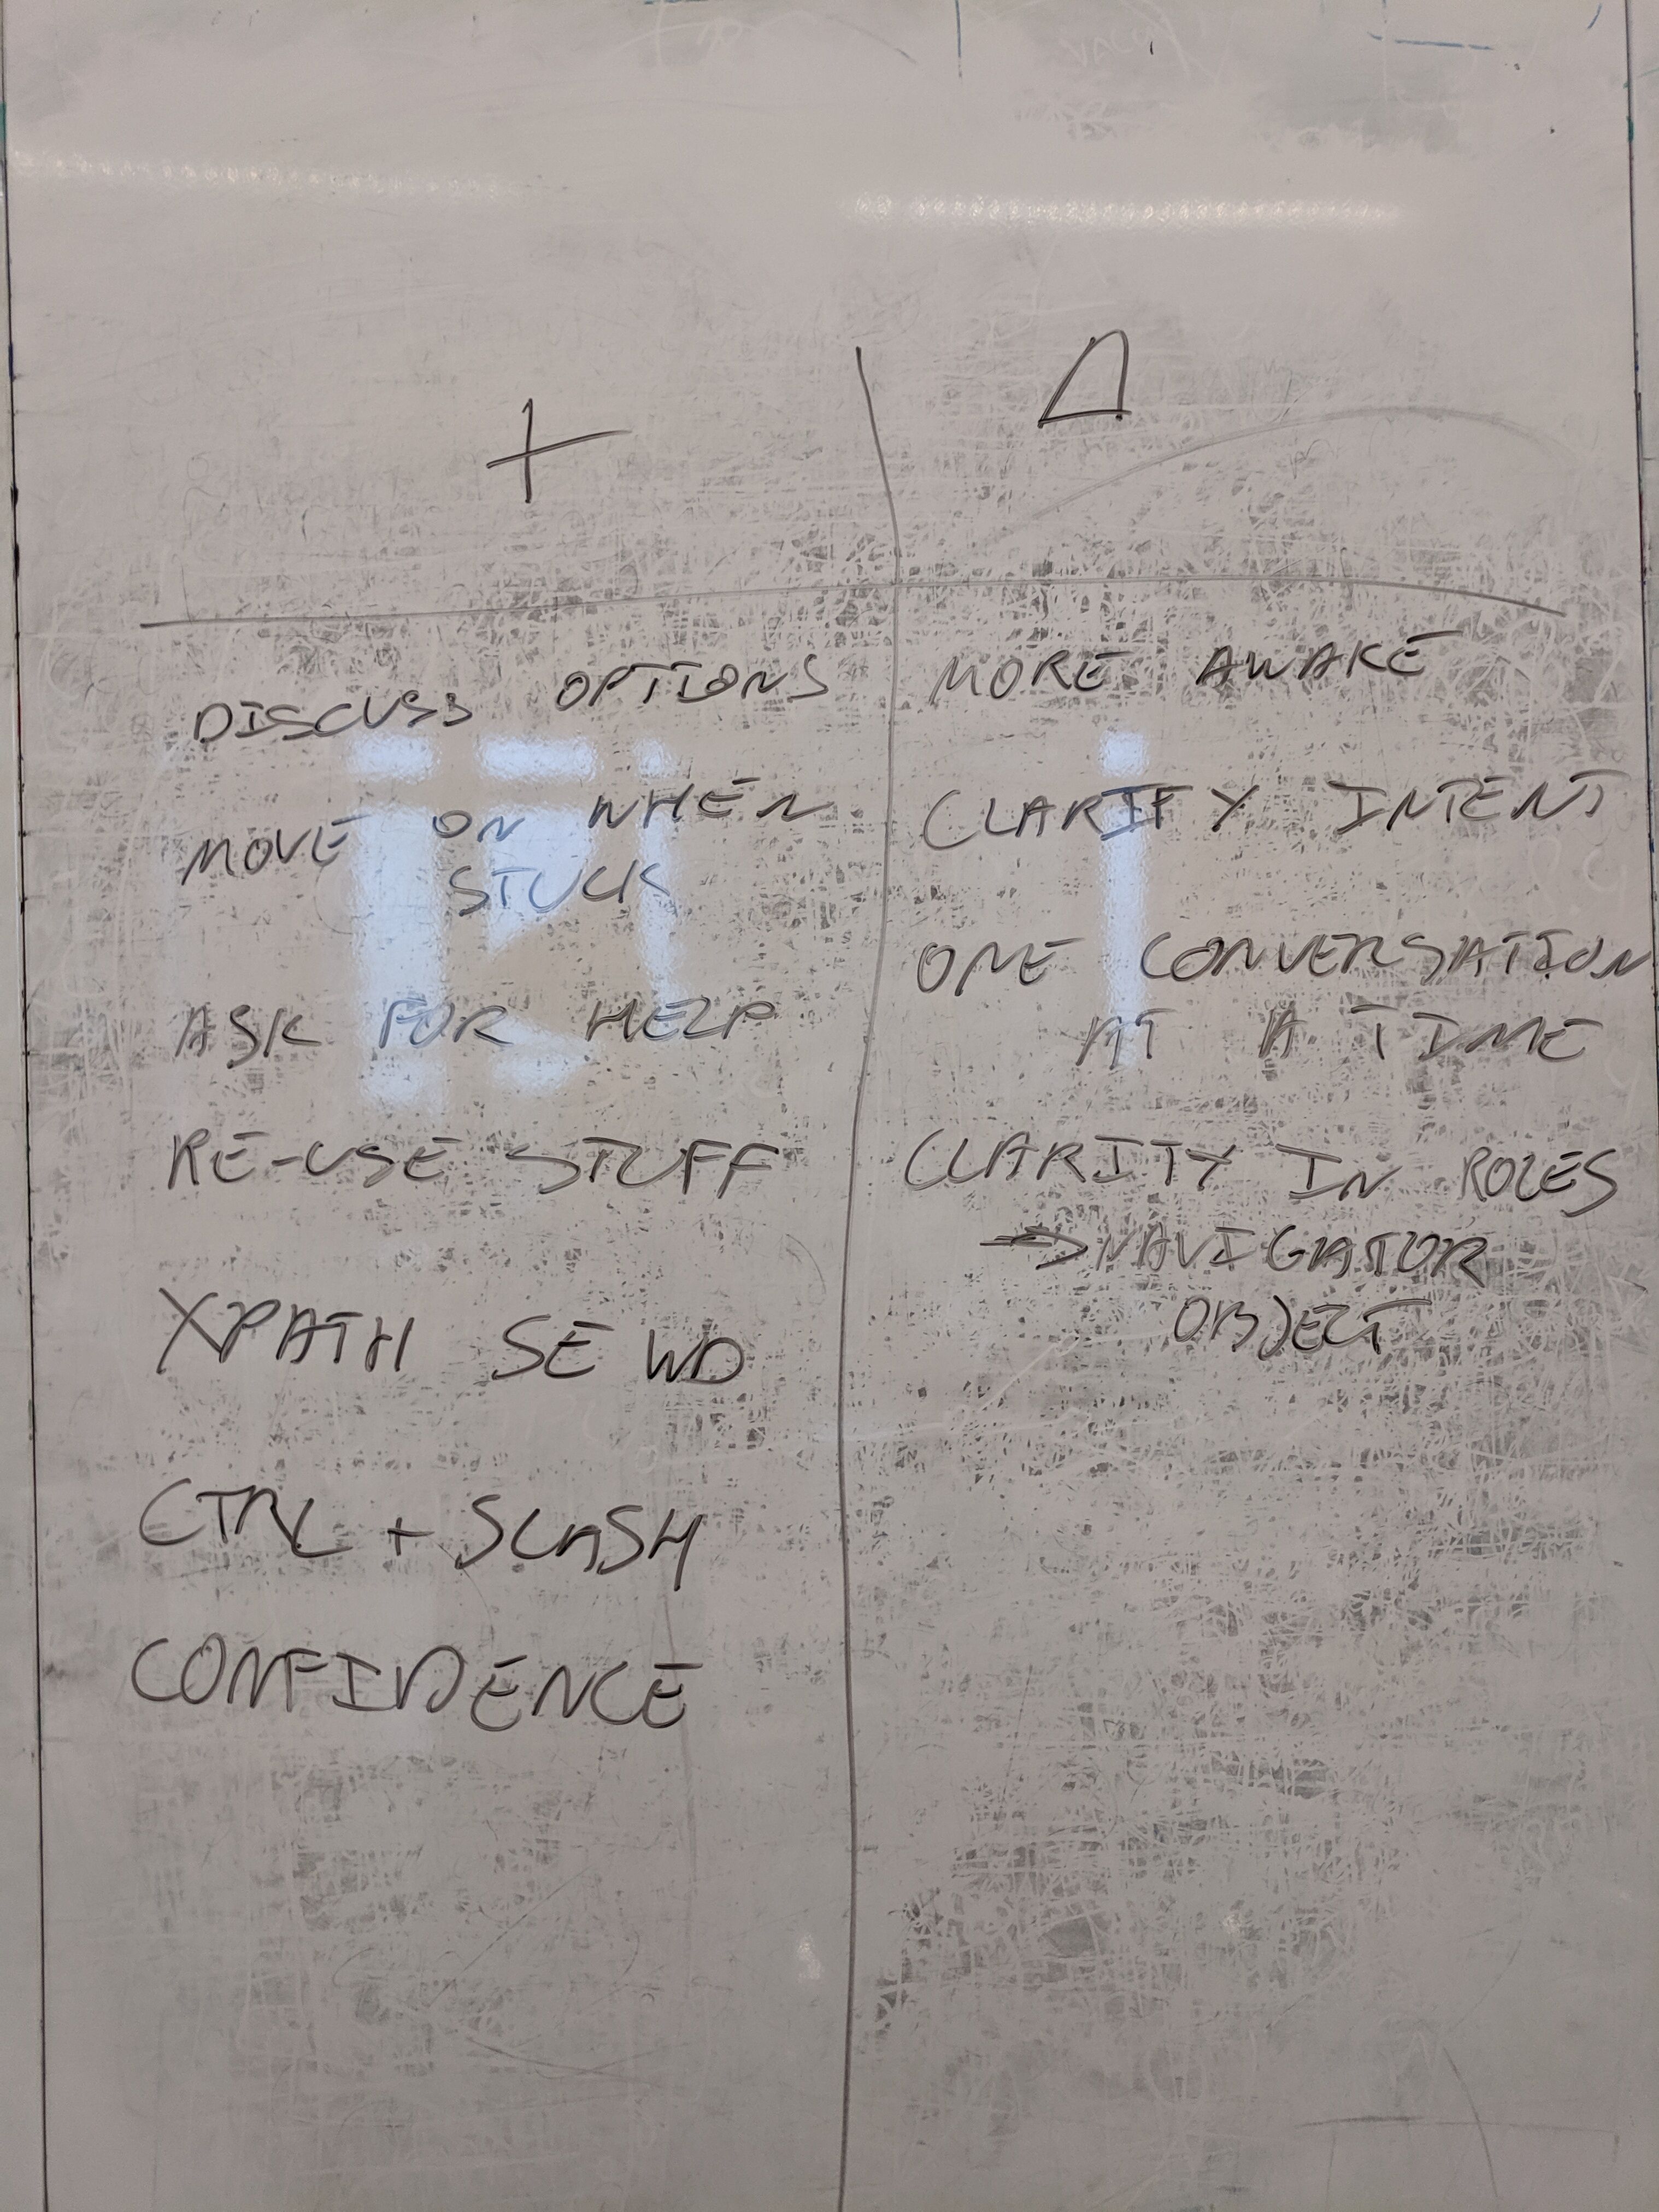 +
Δ
DISCUSS OPTIONS
MOVE ON WHEN
STUCK
ASK FOR HELP
RE-USE STUFF
XPATH SE WD
CTRL + SLASH
CONFIDENCE
MORE AWAKE
CLARIFY INTENT
ONE CONVERSATION
AT A TIME
CLARITY IN ROLES
⇒ NAVIGATOR
OBJECT